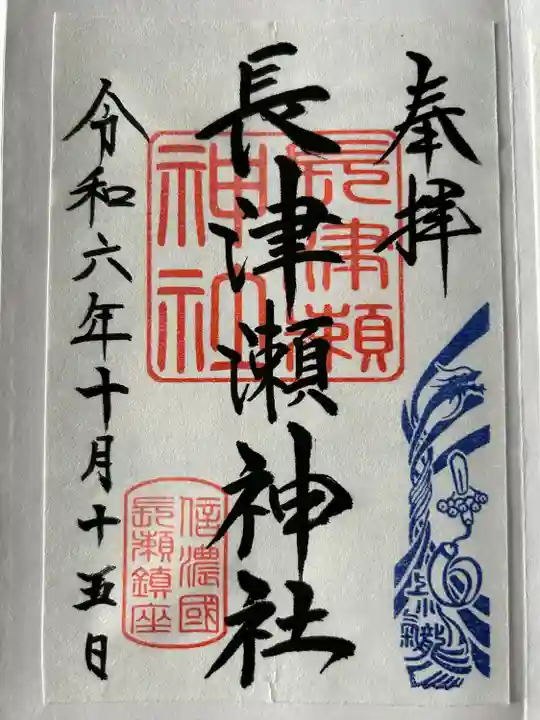 奉拝
長津瀬神社
長津瀬神社
令和六年十月十五日
信濃國
長瀬鎮座
上小
龍